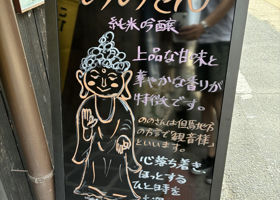 ののさん
純米吟醸
上品な甘味と
華やかな香りが
特徴です。
ののさんは但馬地方
の方言で「観音様」と
いいます。
心落ち着き、
ほっとする
ひと時を